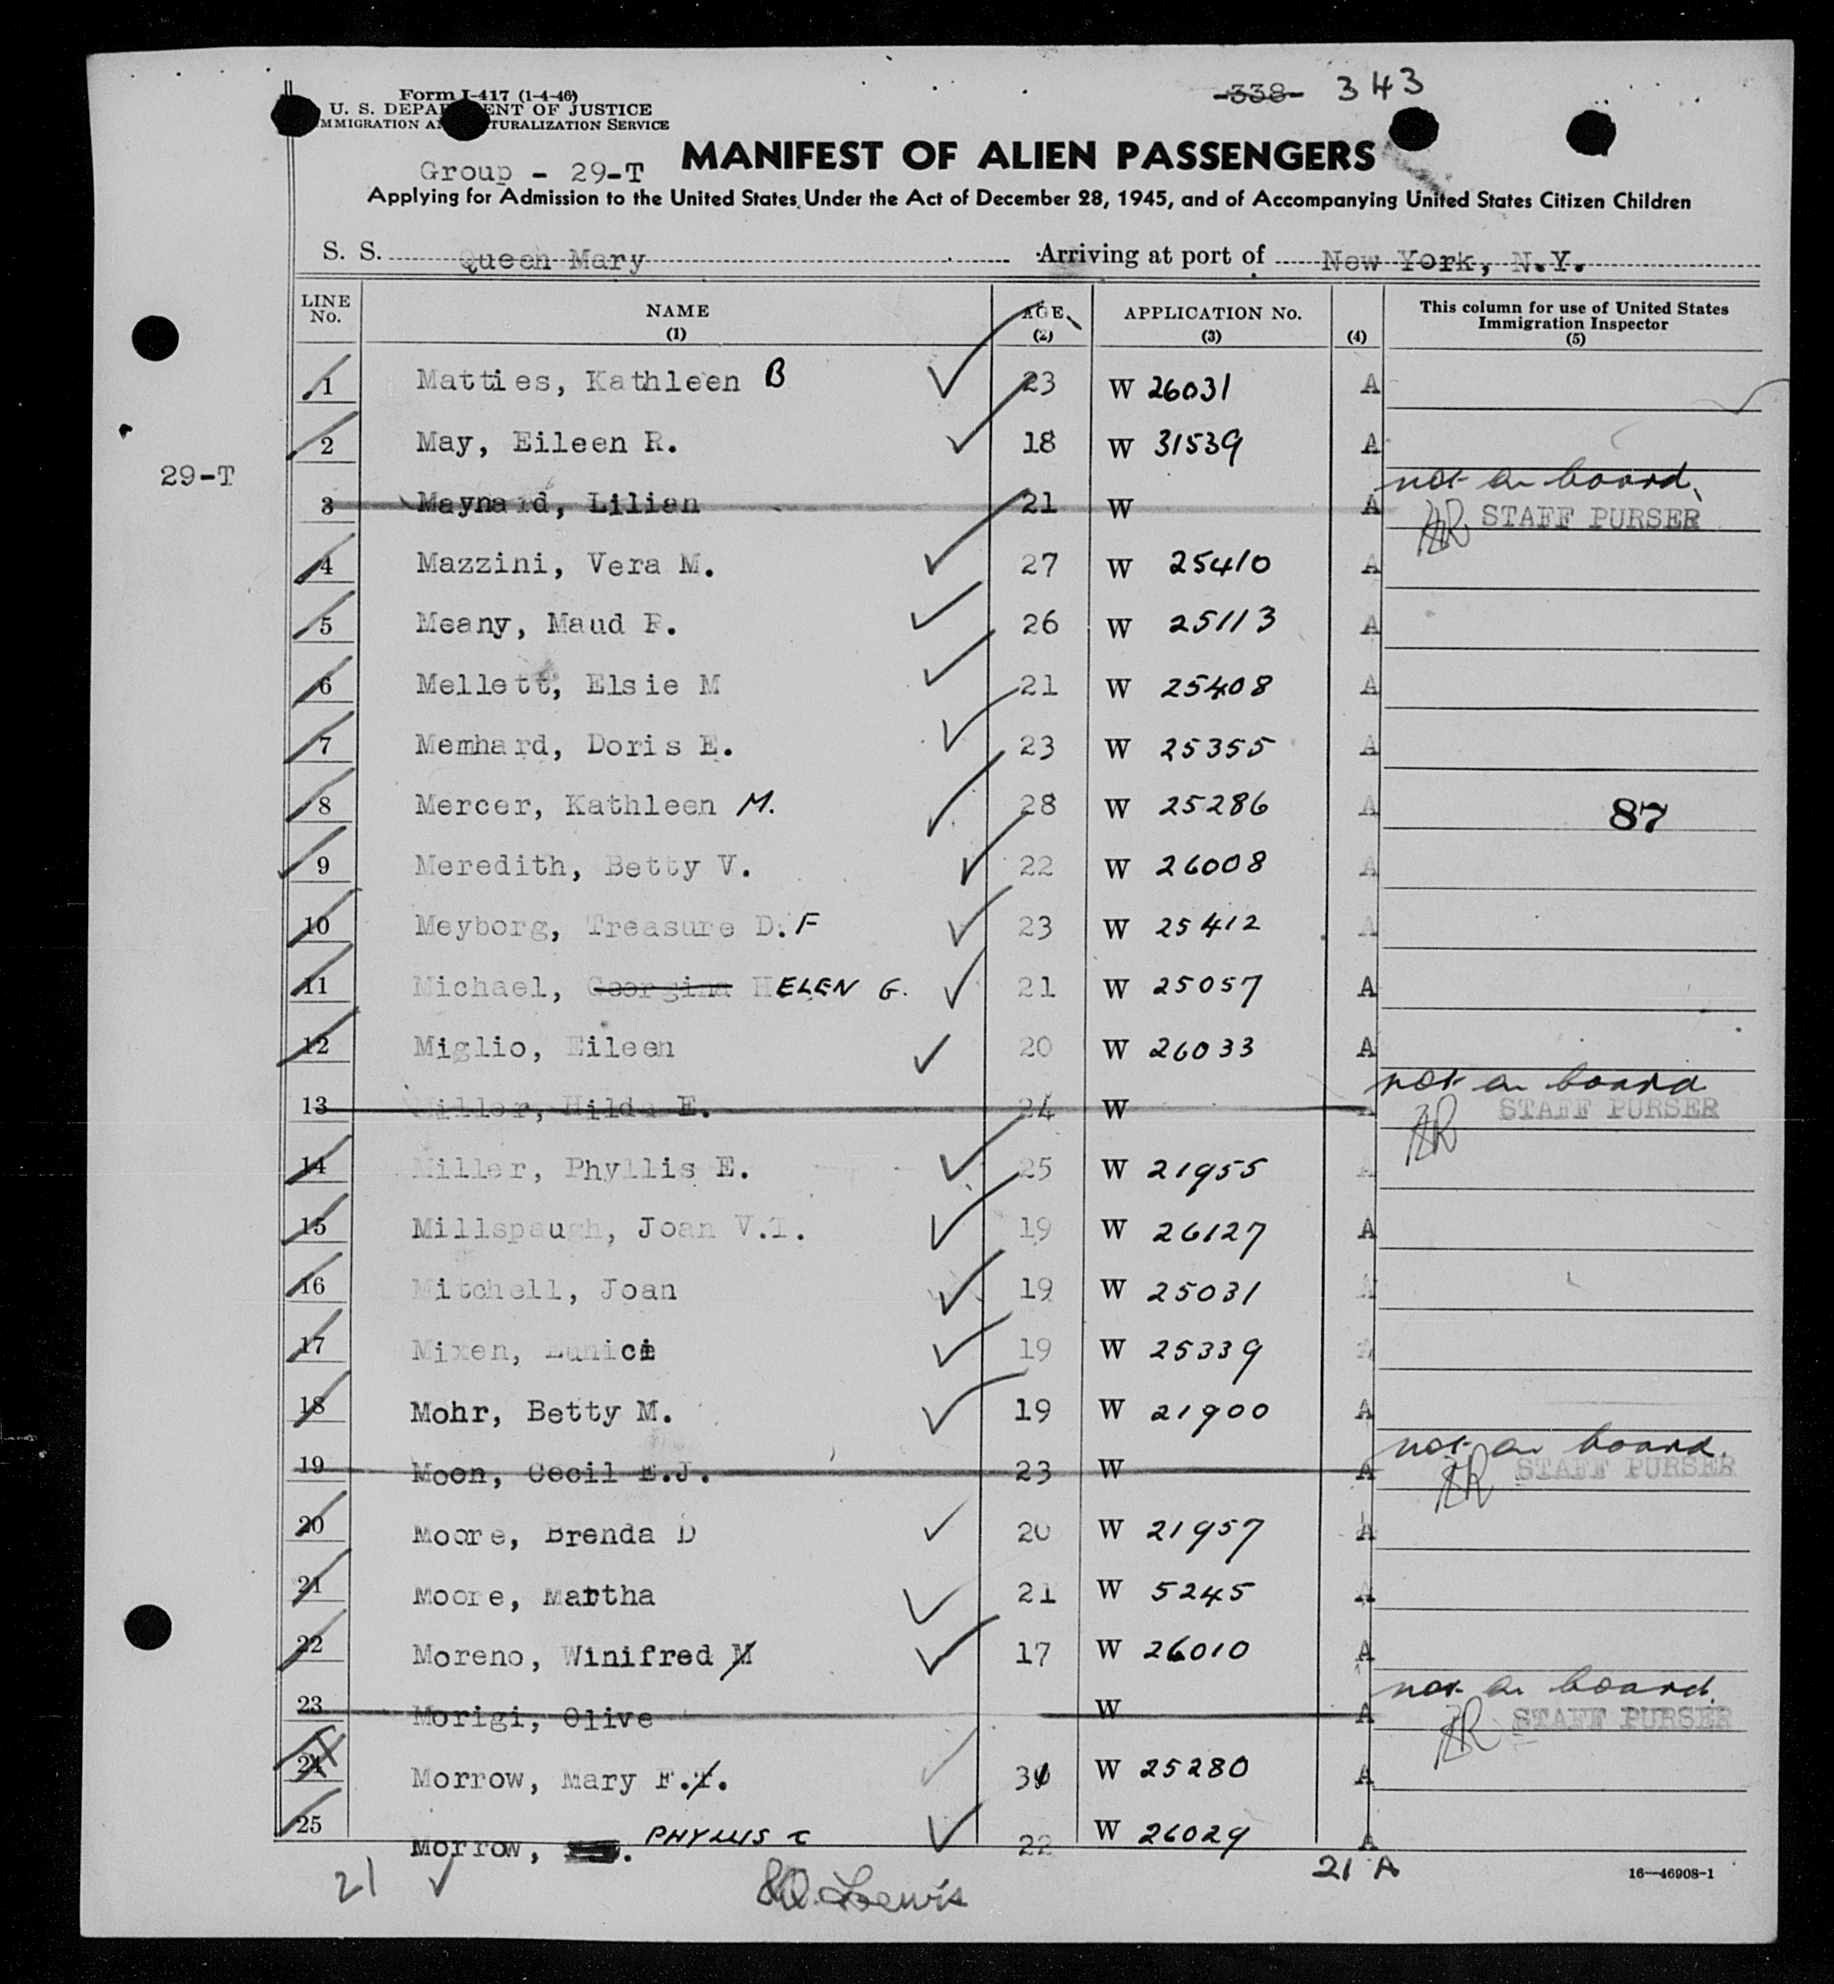 338 343
Form I-417 (1-4-46)
U. S. DEPARTMENT OF JUSTICE
IMMIGRATION AND NATURALIZATION SERVICE
Group - 29-T MANIFEST OF ALIEN PASSENGERS
Applying for Admission to the United States Under the Act of December 28, 1945, and of Accompanying United States Citizen Children
S. S. Queen Mary Arriving at port of New York, N.Y.
LINE No. NAME (1) AGE (2) APPLICATION No. (3) (4) This column for use of United States Immigration Inspector (5)
1 Matties, Kathleen B 23 W 26031 A
2 May, Eileen R. 18 W 31539 A
29-T
3 Maynard, Lilian 21 W A not on board. STAFF PURSER
4 Mazzini, Vera M. 27 W 25410 A
5 Meany, Maud F. 26 W 25113 A
6 Mellett, Elsie M 21 W 25408 A
7 Memhard, Doris E. 23 W 25355 A
8 Mercer, Kathleen M. 28 W 25286 A 87
9 Meredith, Betty V. 22 W 26008 A
10 Meyborg, Treasure D. F 23 W 25412 A
11 Michael, Georgina HELEN G. 21 W 25057 A
12 Miglio, Eileen 20 W 26033 A
13 Miller, Hilda E. 24 W A not on board STAFF PURSER
14 Miller, Phyllis E. 25 W 21955 A
15 Millspaugh, Joan V.T. 19 W 26127 A
16 Mitchell, Joan 19 W 25031 A
17 Mixen, Eunice 19 W 25339 A
18 Mohr, Betty M. 19 W 21900 A
19 Moon, Cecil E.J. 23 W A not on board. STAFF PURSER
20 Moore, Brenda D 20 W 21957 A
21 Moore, Martha 21 W 5245 A
22 Moreno, Winifred M 17 W 26010 A
23 Morigi, Olive W A not on board. STAFF PURSER
24 Morrow, Mary F.T. 30 W 25280 A
25 Morrow, PHYLLIS C 22 W 26029 A
21 Lewis 21 A 16—46908-1